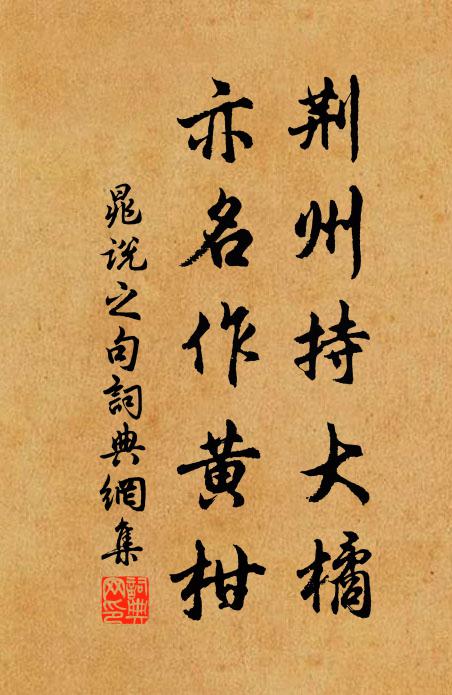 荆州持大橘
亦名作黄柑
晁说之句詞典網集
詞典网印